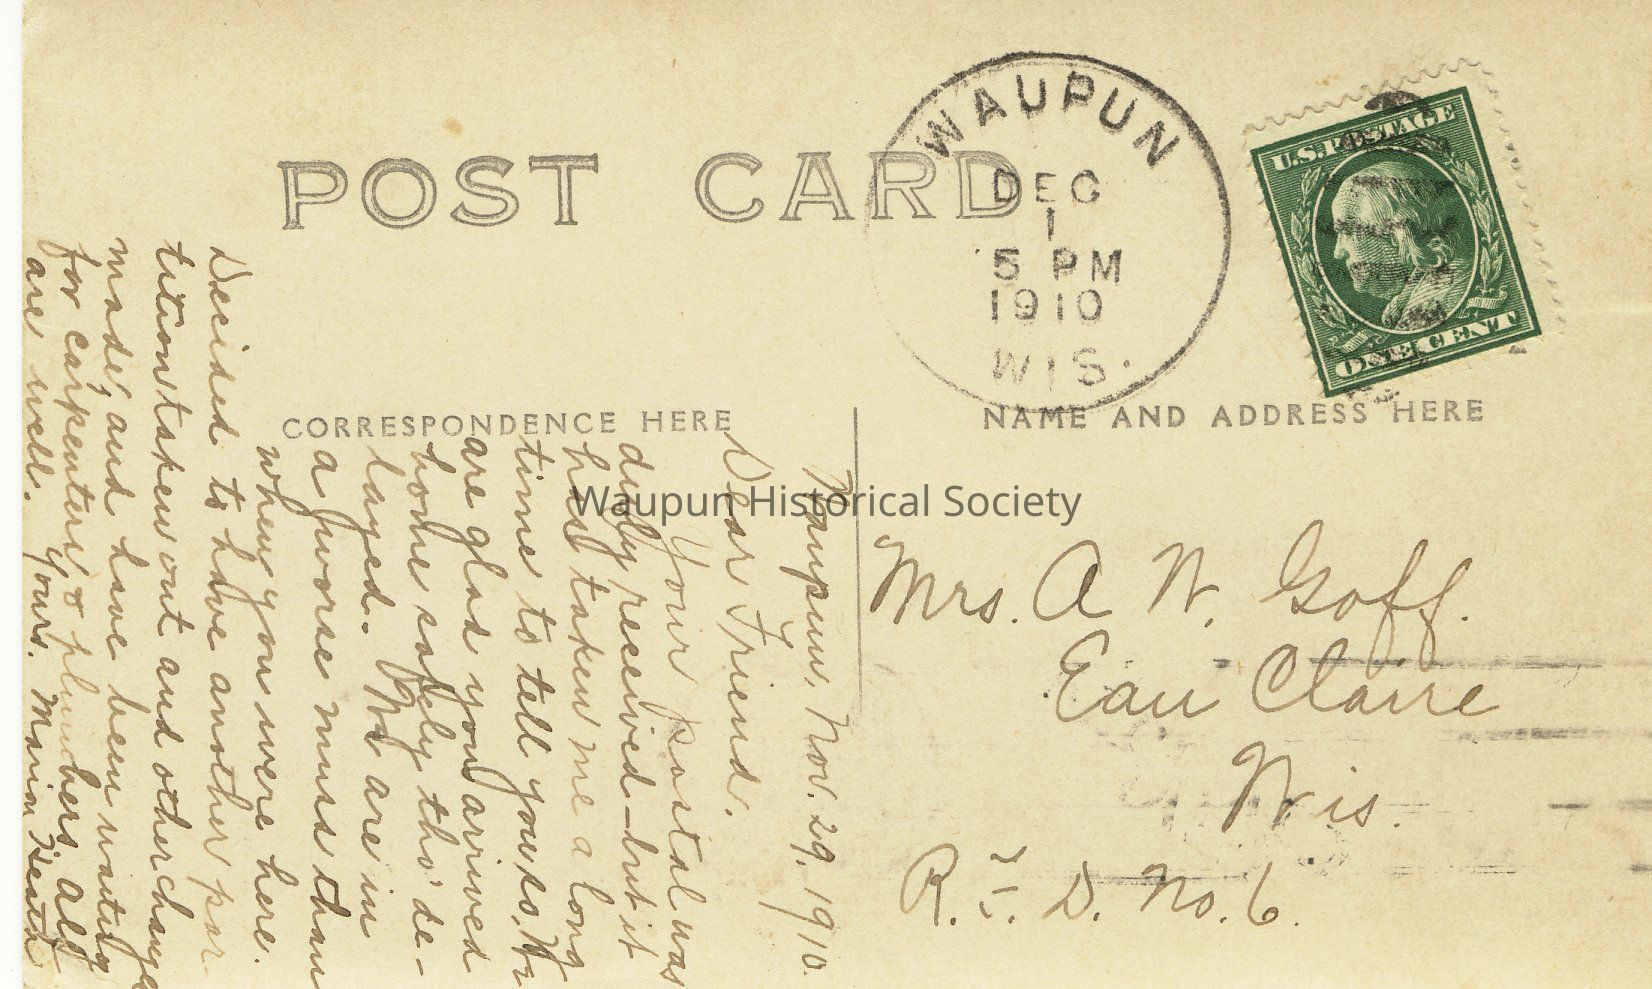 POST CARD
WAUPUN
DEC
1
5 PM
1910
WIS.
U.S. POSTAGE
ONE CENT
CORRESPONDENCE HERE
NAME AND ADDRESS HERE
Waupun Historical Society
Waupun, Nov. 29, 1910.
Dear Friend.
Your postal was
duly received - but it
has taken me a long
time to tell you so. We
are glad you arrived
home safely tho' de-
layed. We are in
a worse muss than
when you were here.
Decided to have another par-
tition taken out and other changes
made, and have been waiting
for carpenters & plumbers. All
are well. Yours. Marion Heath
Mrs. A W. Goff.
Eau Claire
Wis.
R. F. D. No. 6.